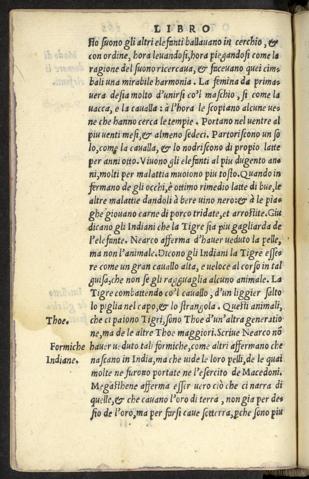 LIBRO
Ho suono gli altri elefanti ballauano in cerchio, &
con ordine, hora leuandosi, hora piegandosi come la
ragione del suono ricercaua, & faceuano quei cim=
bali una mirabile harmonia. La femina da prima=
uera desia molto d'unirsi co'l maschio, si come la
uacca, e la caualla: a l'hora le scopiano alcune ue=
ne che hanno cerca le tempie. Portano nel uentre al
piu uenti mesi, & almeno sedeci. Partoriscono un so
lo, come la caualla, & lo nodriscono di proprio latte
per anni otto. Viuono gli elefanti al piu dugento an=
ni, molti per malattia muoiono piu tosto. Quando in
fermano de gli occhi, è ottimo rimedio latte di bue, le
altre malattie dandoli à bere uino nero: & à le pia=
ghe giouano carne di porco tridate, et arrostite. Giu
dicano gli Indiani che la Tigre sia piu gagliarda de
l'elefante. Nearco afferma d'hauer ueduto la pelle,
ma non l'animale. Dicono gli Indiani la Tigre esse=
re come un gran cauallo alta, e ueloce al corso in tal
guisa, che non se gli ragguaglia alcuno animale. La
Tigre combattendo co'l cauallo, d'un liggier salto
lo piglia nel capo, & lo strangola. Questi animali,
Thoe. che ci paiono Tigri, sono Thoe d'un'altra generatio
ne, ma de le altre Thoe maggiori. Scriue Nearco nõ
Formiche hauer ueduto tali formiche, come altri affermano che
Indiane. nascano in India, ma che uide le loro pelli, de le quai
molte ne furono portate ne l'esercito de Macedoni.
Megasthene afferma esser uero ciò che ci narra di
quelle, & che cauano l'oro di terra, non gia per de=
sio de l'oro, ma per farsi caue sotterra, pche sono piu